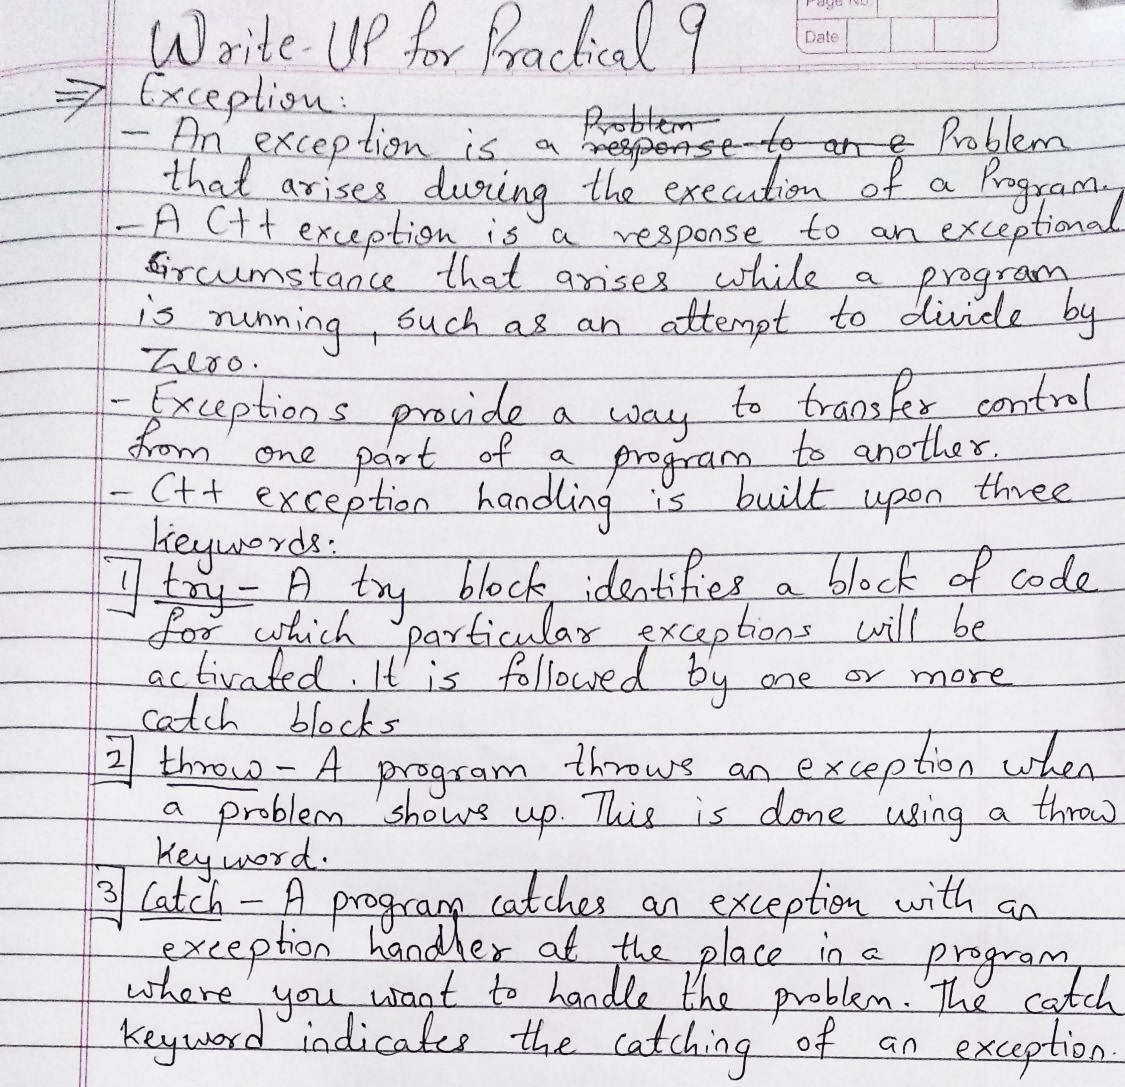 Page No.
Date
Write-UP for Practical 9
⇒ Exception:
- An exception is a Problem response to an e Problem
that arises during the execution of a Program.
- A C++ exception is a response to an exceptional
circumstance that arises while a program
is running, such as an attempt to divide by
Zero.
- Exceptions provide a way to transfer control
from one part of a program to another.
- C++ exception handling is built upon three
keywords:
1] try - A try block identifies a block of code
for which particular exceptions will be
activated. It is followed by one or more
catch blocks
2] throw - A program throws an exception when
a problem shows up. This is done using a throw
keyword.
3] Catch - A program catches an exception with an
exception handler at the place in a program
where you want to handle the problem. The catch
keyword indicates the catching of an exception.